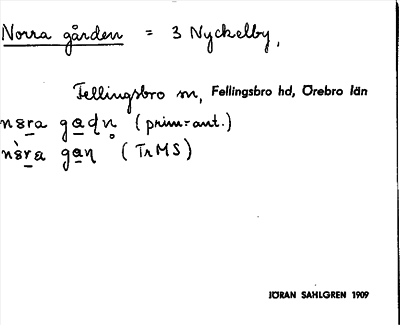 Norra gården = 3 Nyckelby,
Fellingsbro sn, Fellingsbro hd, Örebro län
(prim-ant.)
(Tr MS)
JÖRAN SAHLGREN 1909